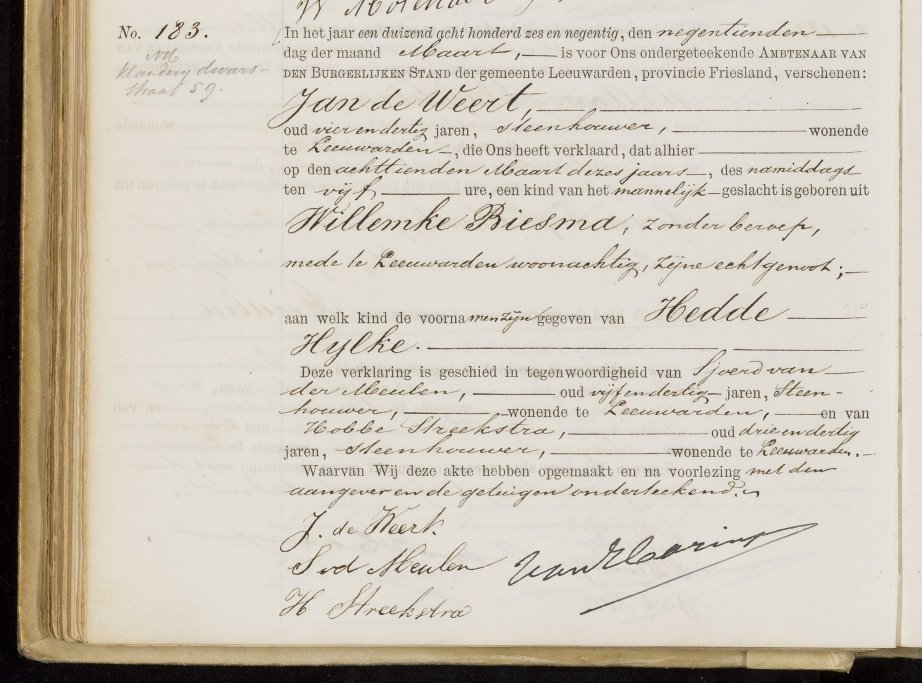 No. 183.
In het jaar een duizend acht honderd zes en negentig, den negentienden
dag der maand Maart, is voor Ons ondergeteekende AMBTENAAR VAN
DEN BURGERLIJKEN STAND der gemeente Leeuwarden, provincie Friesland, verschenen:
Klanderij dwars-
straat 59.
Jan de Weert,
oud vier en dertig jaren, steenhouwer, wonende
te Leeuwarden, die Ons heeft verklaard, dat alhier
op den achttienden Maart dezes jaars, des namiddags
ten vijf ure, een kind van het mannelijk geslacht is geboren uit
Willemke Riesma, zonder beroep,
mede te Leeuwarden woonachtig, zijne echtgenoot;
aan welk kind de voornamen zijn gegeven van Hedde
Hylke.
Deze verklaring is geschied in tegenwoordigheid van Sjoerd van
der Meulen, oud vijf en dertig jaren, Steen-
houwer, wonende te Leeuwarden, en van
Hobbe Streekstra, oud drie en dertig
jaren, steenhouwer, wonende te Leeuwarden.
Waarvan Wij deze akte hebben opgemaakt en na voorlezing met den
aangever en de getuigen onderteekend.
J. de Weert.
S vd Meulen
H Streekstra